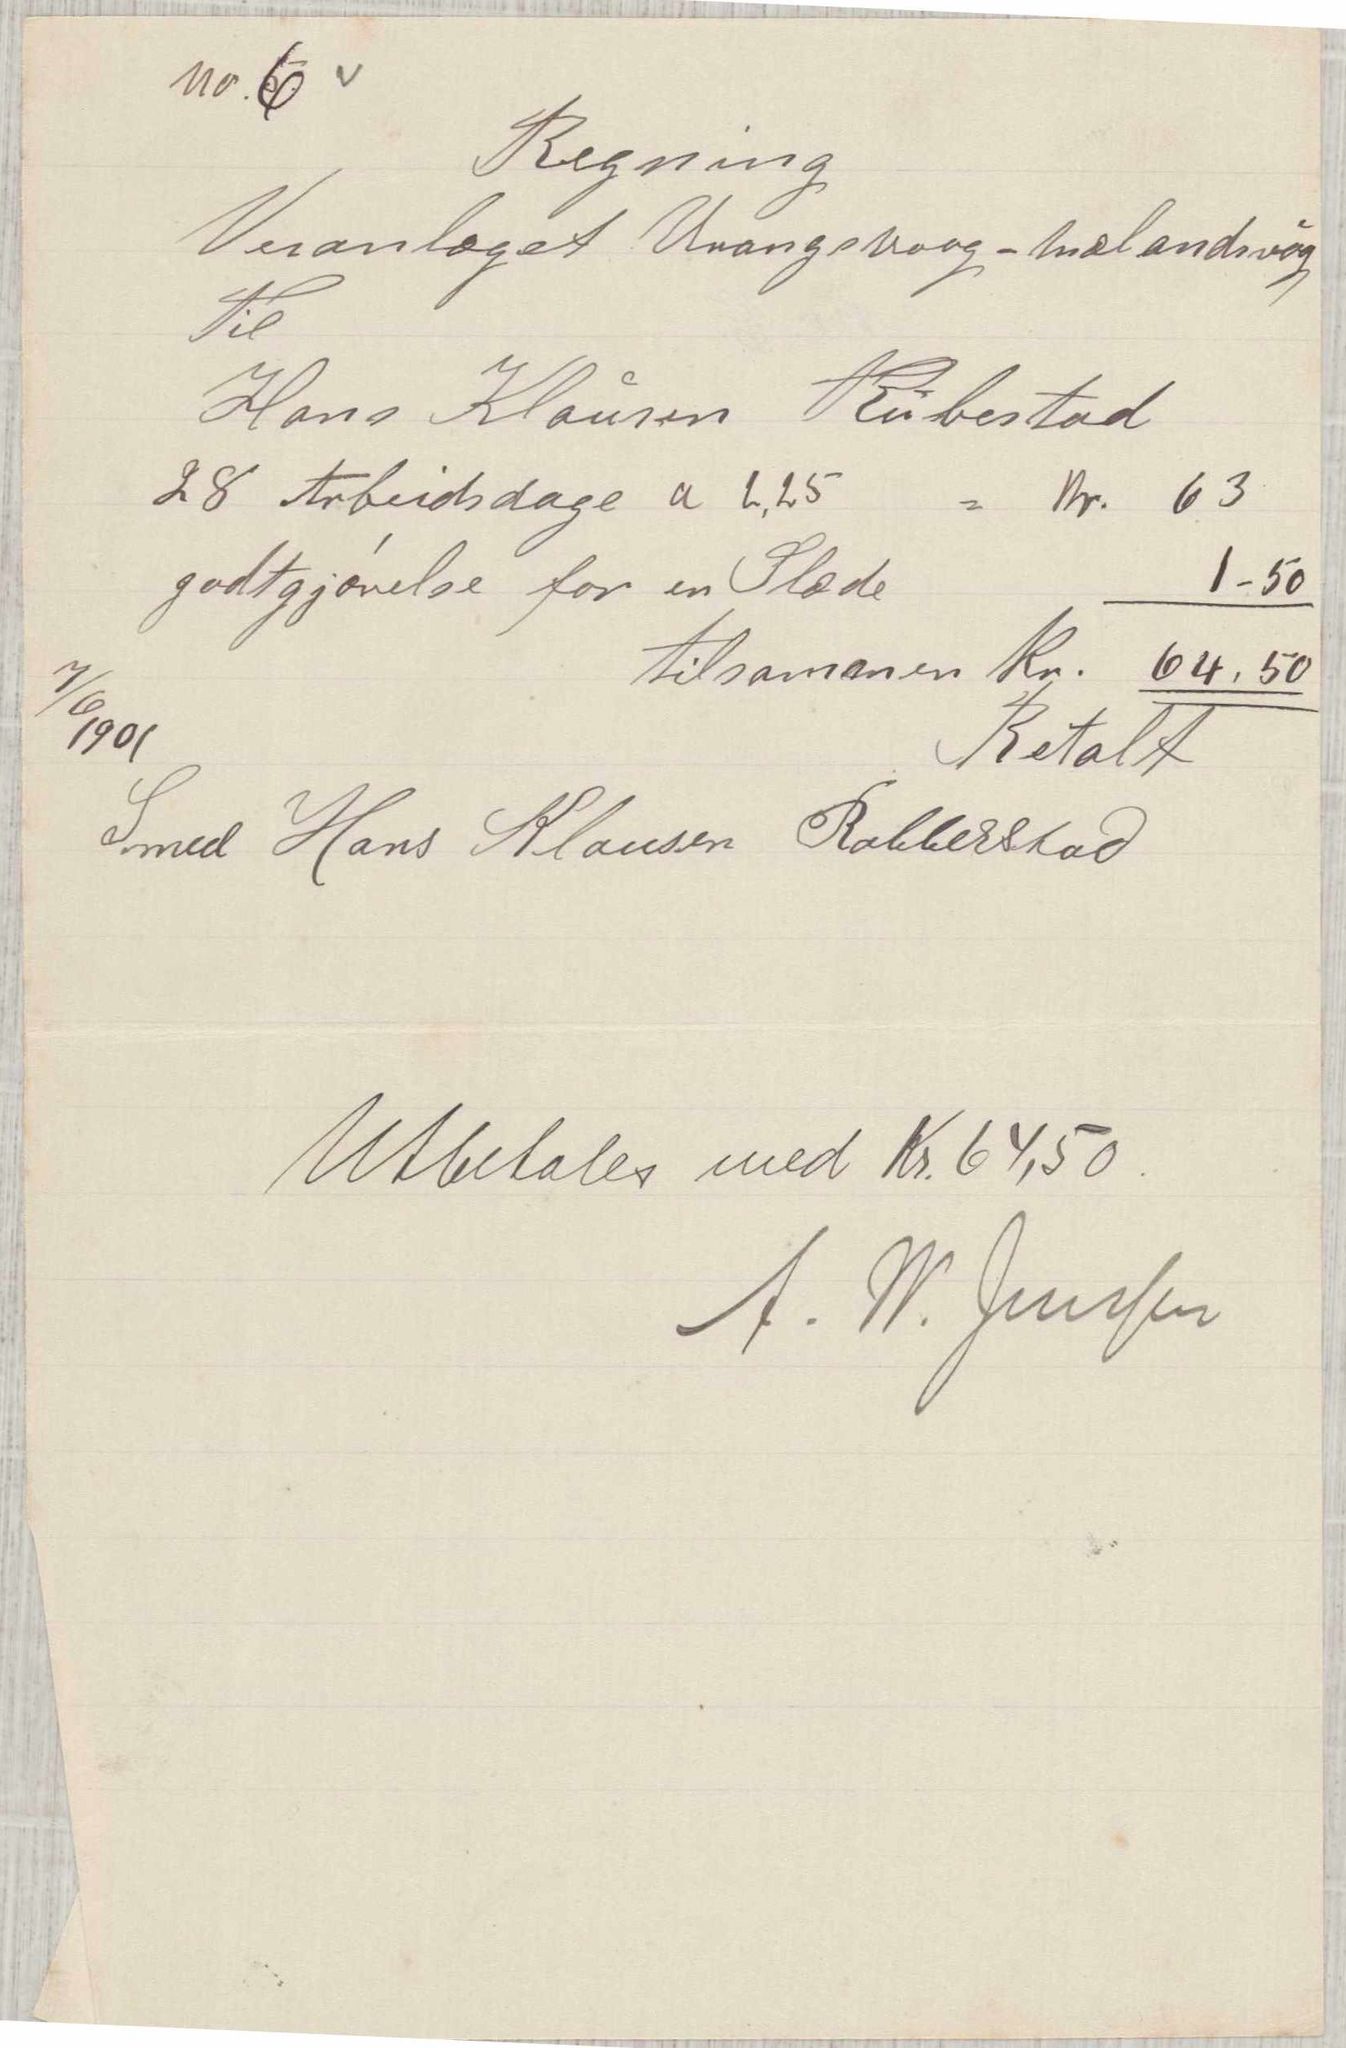 No. 6 v
Regning
Veranlæget Urangsvaag - Mælandsvåg
til
Hans Klausen Rübestad
28 Arbeidsdage a 2,25 = Kr. 63
godtgjørelse for en Slæde 1-50
tilsammen Kr. 64.50
7/6 1901
Betalt
Smed Hans Klausen Robberstad
Utbetales med Kr. 64,50.
A. W. Jenssen